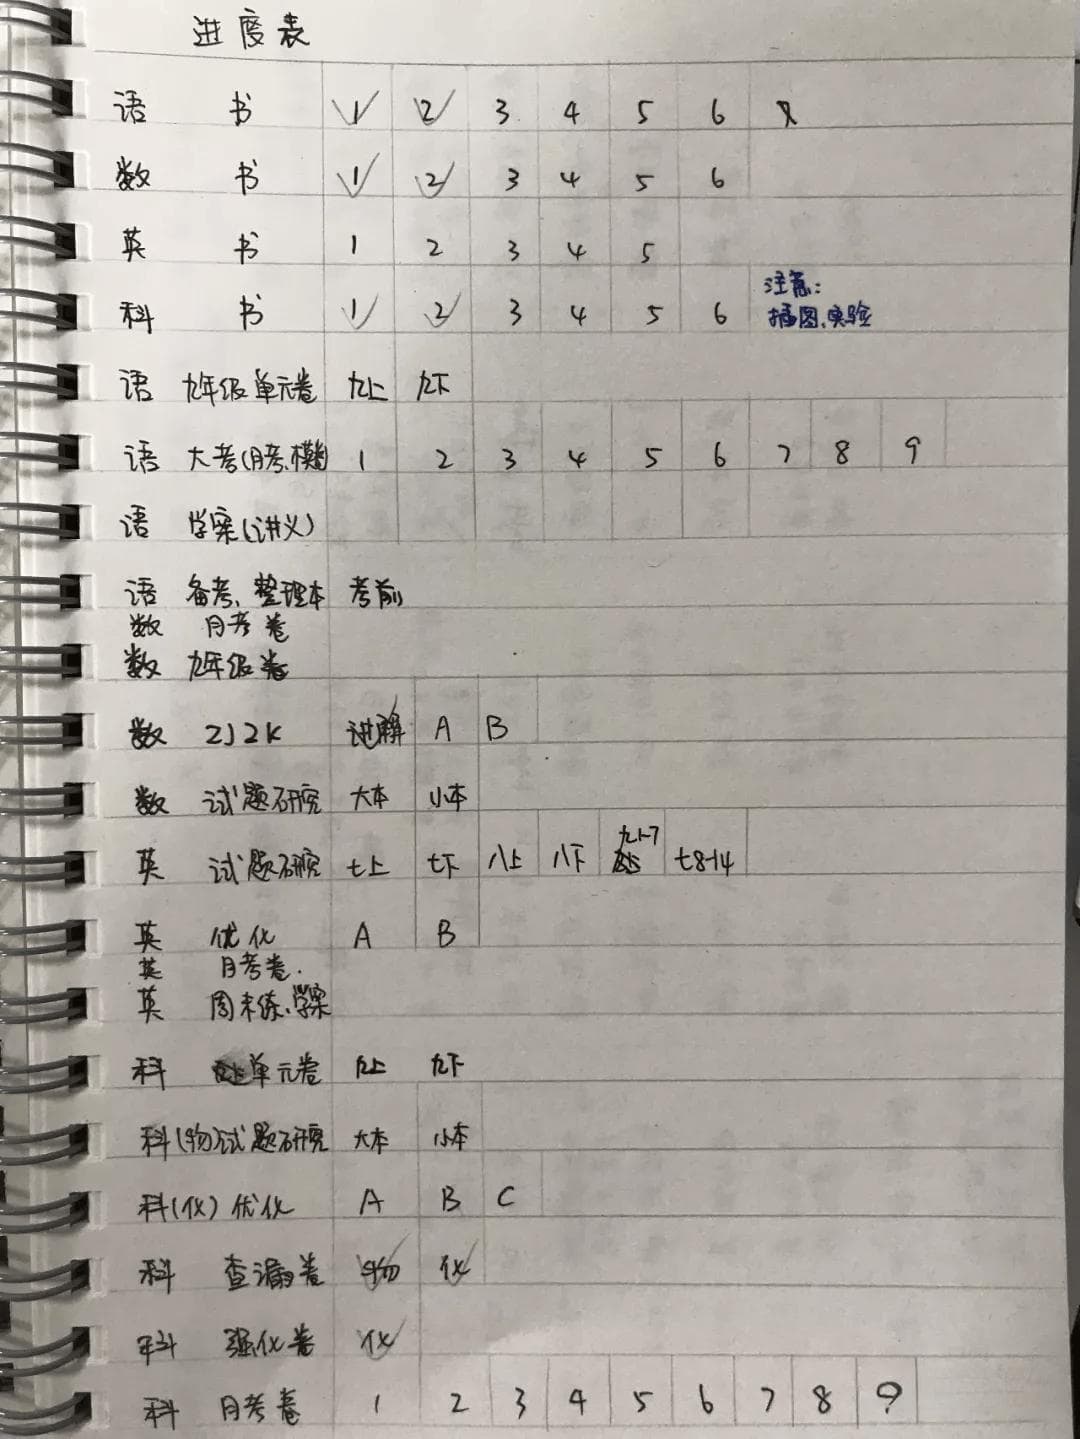 进度表
语 书 1 2 3 4 5 6
数 书 1 2 3 4 5 6
英 书 1 2 3 4 5
注意:
科 书 1 2 3 4 5 6 插图、实验
语 九年级单元卷 九上 九下
语 大考(月考、模 1 2 3 4 5 6 7 8 9
语 学案(讲义)
语 备考、整理本 考前
数 月考卷
数 九年级卷
数 ZJZK 讲解 A B
数 试题研究 大本 小本
英 试题研究 七上 七下 八上 八下 九1-7 七8-14
英 优化 A B
英 月考卷.
英 周末练、学案
科 单元卷 九上 九下
科(物)试题研究 大本 小本
科(化)优化 A B C
科 查漏卷 物 化
科 强化卷 化
科 月考卷 1 2 3 4 5 6 7 8 9